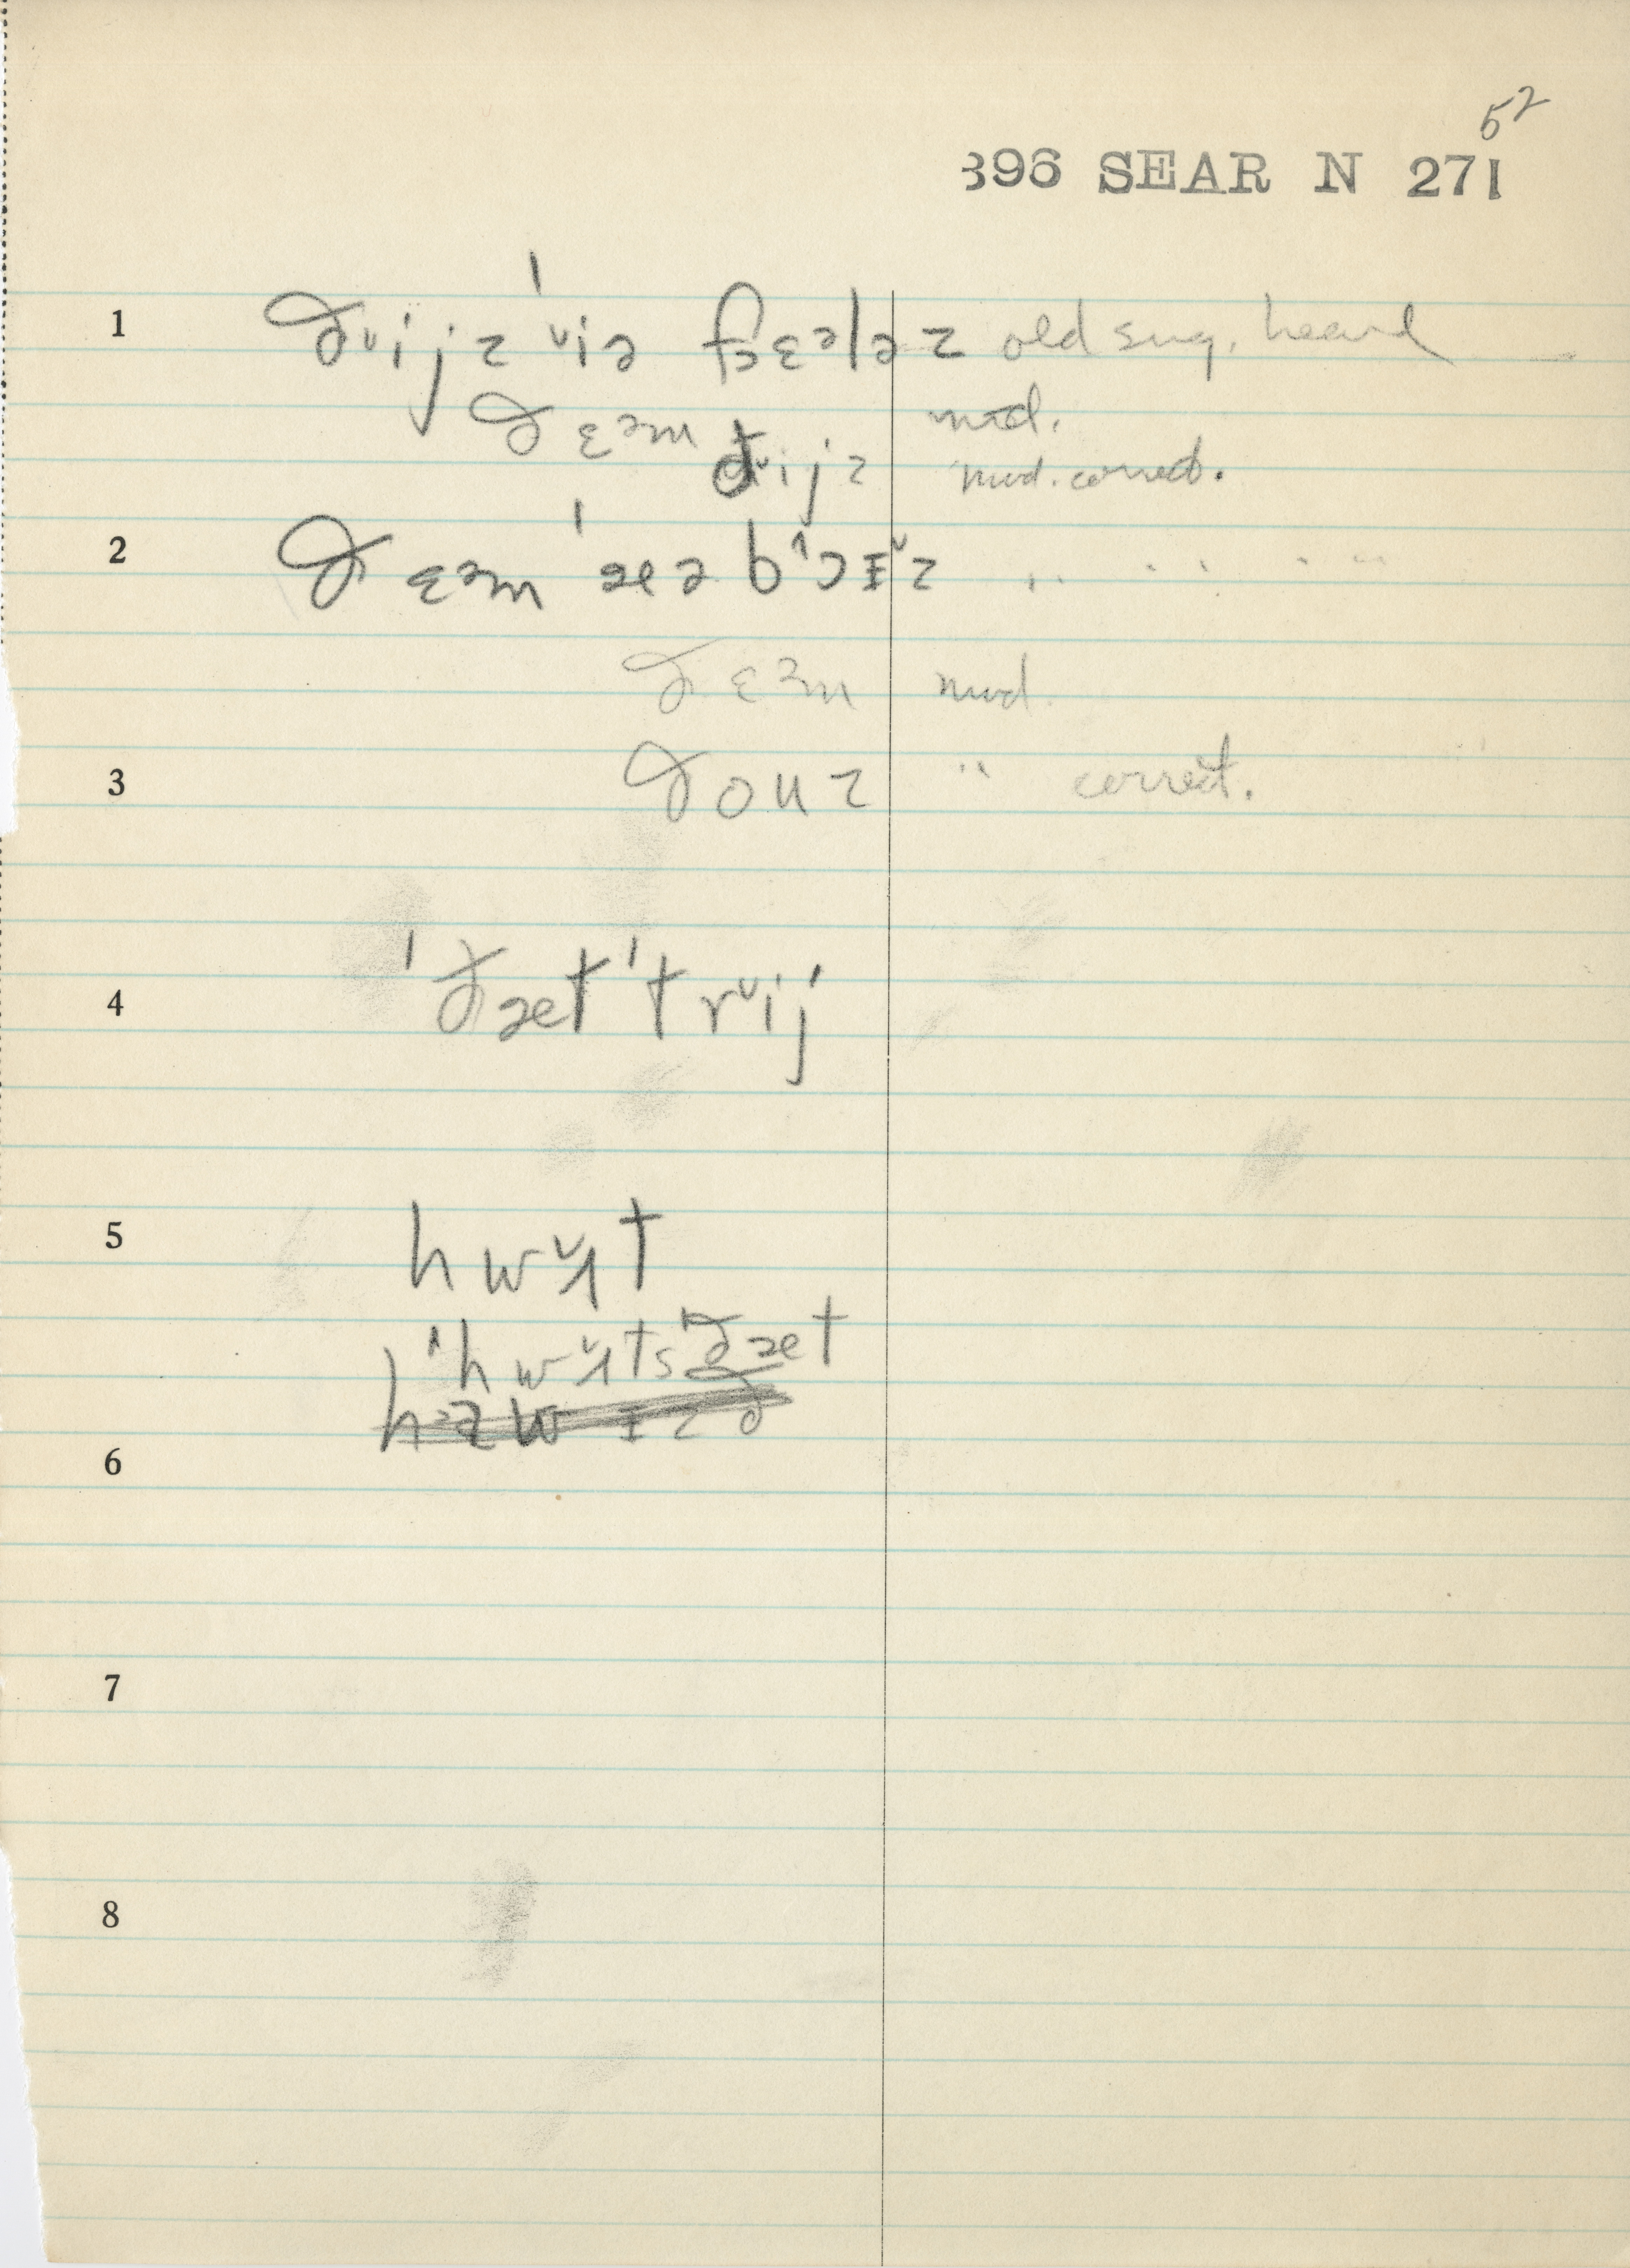 52
396 SEAR N 271
1 ðˇijz ˈˇiə fɛələz old sug. heard
ðɛəm mod.
ðˇijz mod. correct.
2 ðɛəm ˈæɚ bˈɔɪˇz " " "
ðɛəm mod.
3 ðouz " correct.
4 ˈðæt ˈtrˇij
5 hwˇɪt
ˈhwˇɪts ðæt
6
7
8